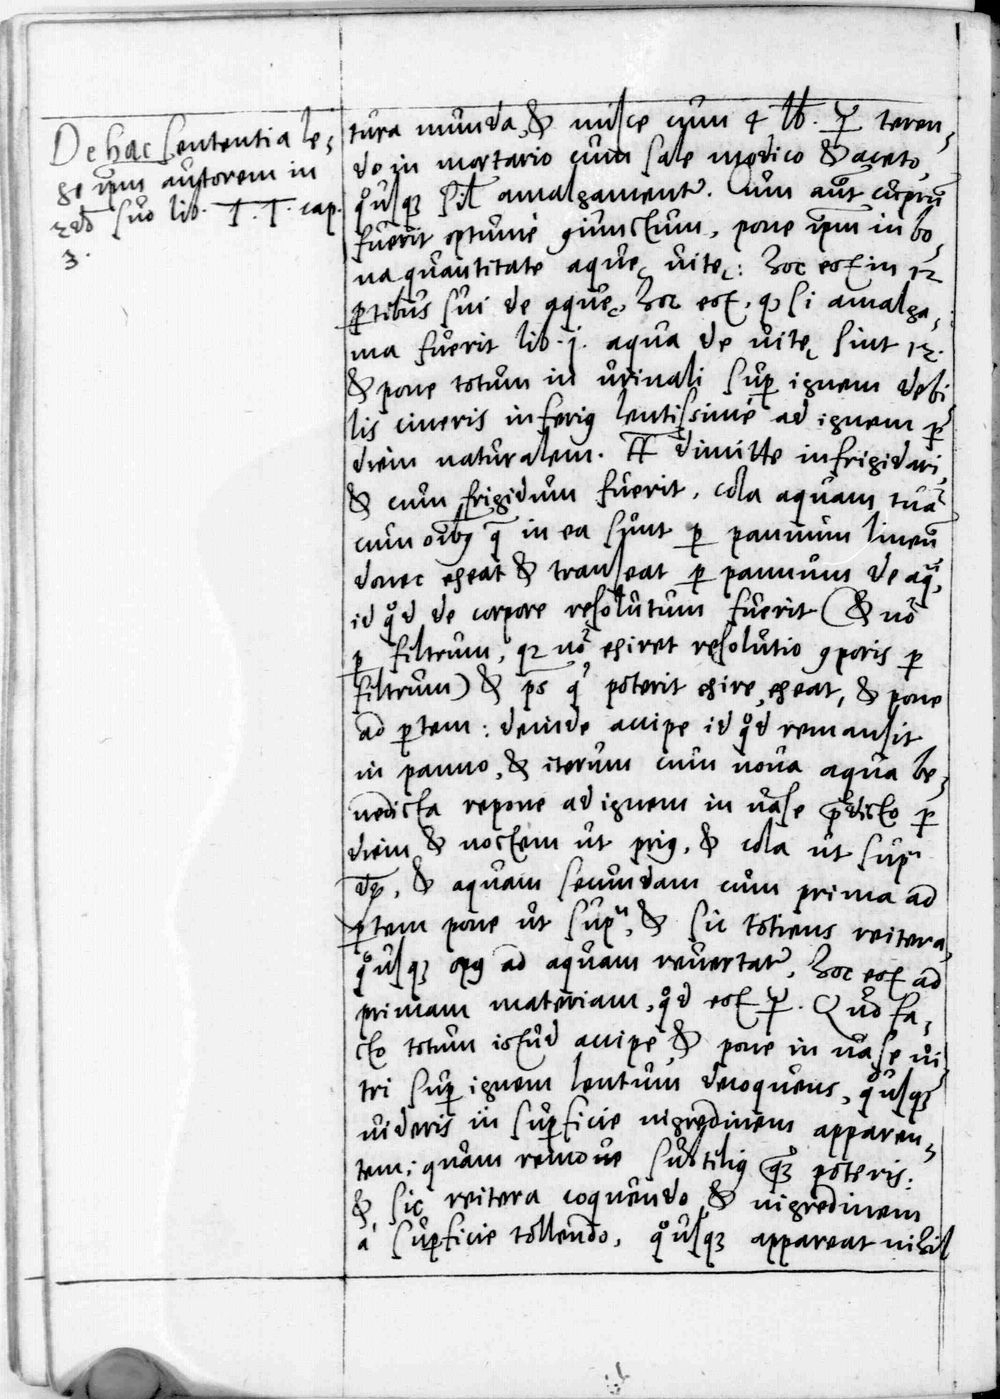 De hac sententia le,
ge ip̄m autorem in
suo lib. T. T. cap.
3.
tura munda, & misce cum 4 lb. ☿ teren,
do in mortario cum sale modico & aceto,
qͦusqꝫ sil̄ amalgamentʳ. Cum aūt cuprū
fuerit optime ꝯiunctum, pone ip̄m in bo,
na quantitate aquę vitę: hoc est in 12
ꝑtibus sui de aquę, hoc est, ꝙ si amalga,
ma fuerit lib. j. aqua de vitę sint 12.
& pone totum in urinali suꝑ ignem debi
lis cineris inferiꝰ lentissimè ad ignem ꝑ
diem naturalem. Et dimitte infrigidari,
& cum frigidum fuerit, cola aquam tuā
cum oībꝰ q̄ in ea sunt ꝑ pannum lineū
donec exeat & transeat ꝑ pannum de aqͣ,
id qͦd de corpore resolutum fuerit (& nō
ꝑ filtrum, qꝛ nō exiret resolutio ꝯporis ꝑ
filtrum) & p̄s q̄ poterit exire, exeat, & pone
ad ꝑtem: deinde accipe id qͦd remansit
in panno, & iterum cum nova aqua be,
nedicta repone ad ignem in vase p̄dicto ꝑ
diem & noctem ut priꝰ, & cola ut supͣ
& aquam secundam cum prima ad
ꝑtem pone ut supͣ, & sic totiens reitera,
qͦusqꝫ opꝰ ad aquam revertatʳ, hoc est ad
primam materiam, qͦd est ☿. Quo fa,
cto totum istud accipe & pone in vase vi
tri suꝑ ignem lentum decoquens, qͦusqꝫ
videris in suꝑficie nigredinem apparen,
tem; quam remove subtiliꝰ qͣꝫ poteris:
& sic reitera coquendo & nigredinem
à suꝑficie tollendo, qͦusqꝫ appareat nihil